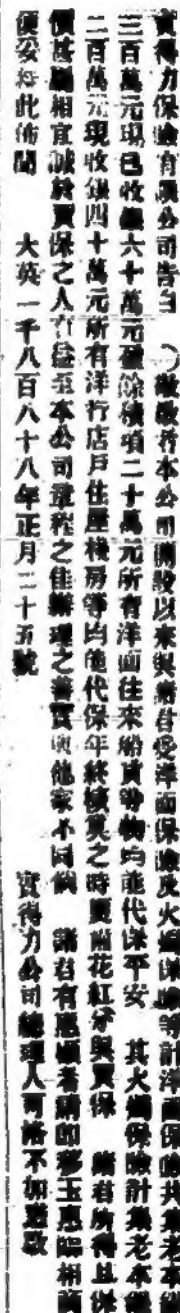 實得力保險有限公司告白　〇敬啟者本公司開設以來與諸君受洋面保險及火燭保險等計洋面保險共集老本銀
三百萬元現已收銀六十萬元確餘積項二十萬元所有洋面往來船貨等物均能代保平安　其火燭保險計集老本銀
二百萬元現收銀四十萬元所有洋行店戶住屋棧房等均能代保年終核算之時更有花紅分與買保　諸君所得且保
價甚屬相宜誠於買保之人有益至本公司章程之佳辦理之善實與他家不同倘　諸君有惠顧者請即移玉惠臨相商
便妥特此佈聞　大英一千八百八十八年正月二十五號　實得力公司總理人可格不加啟